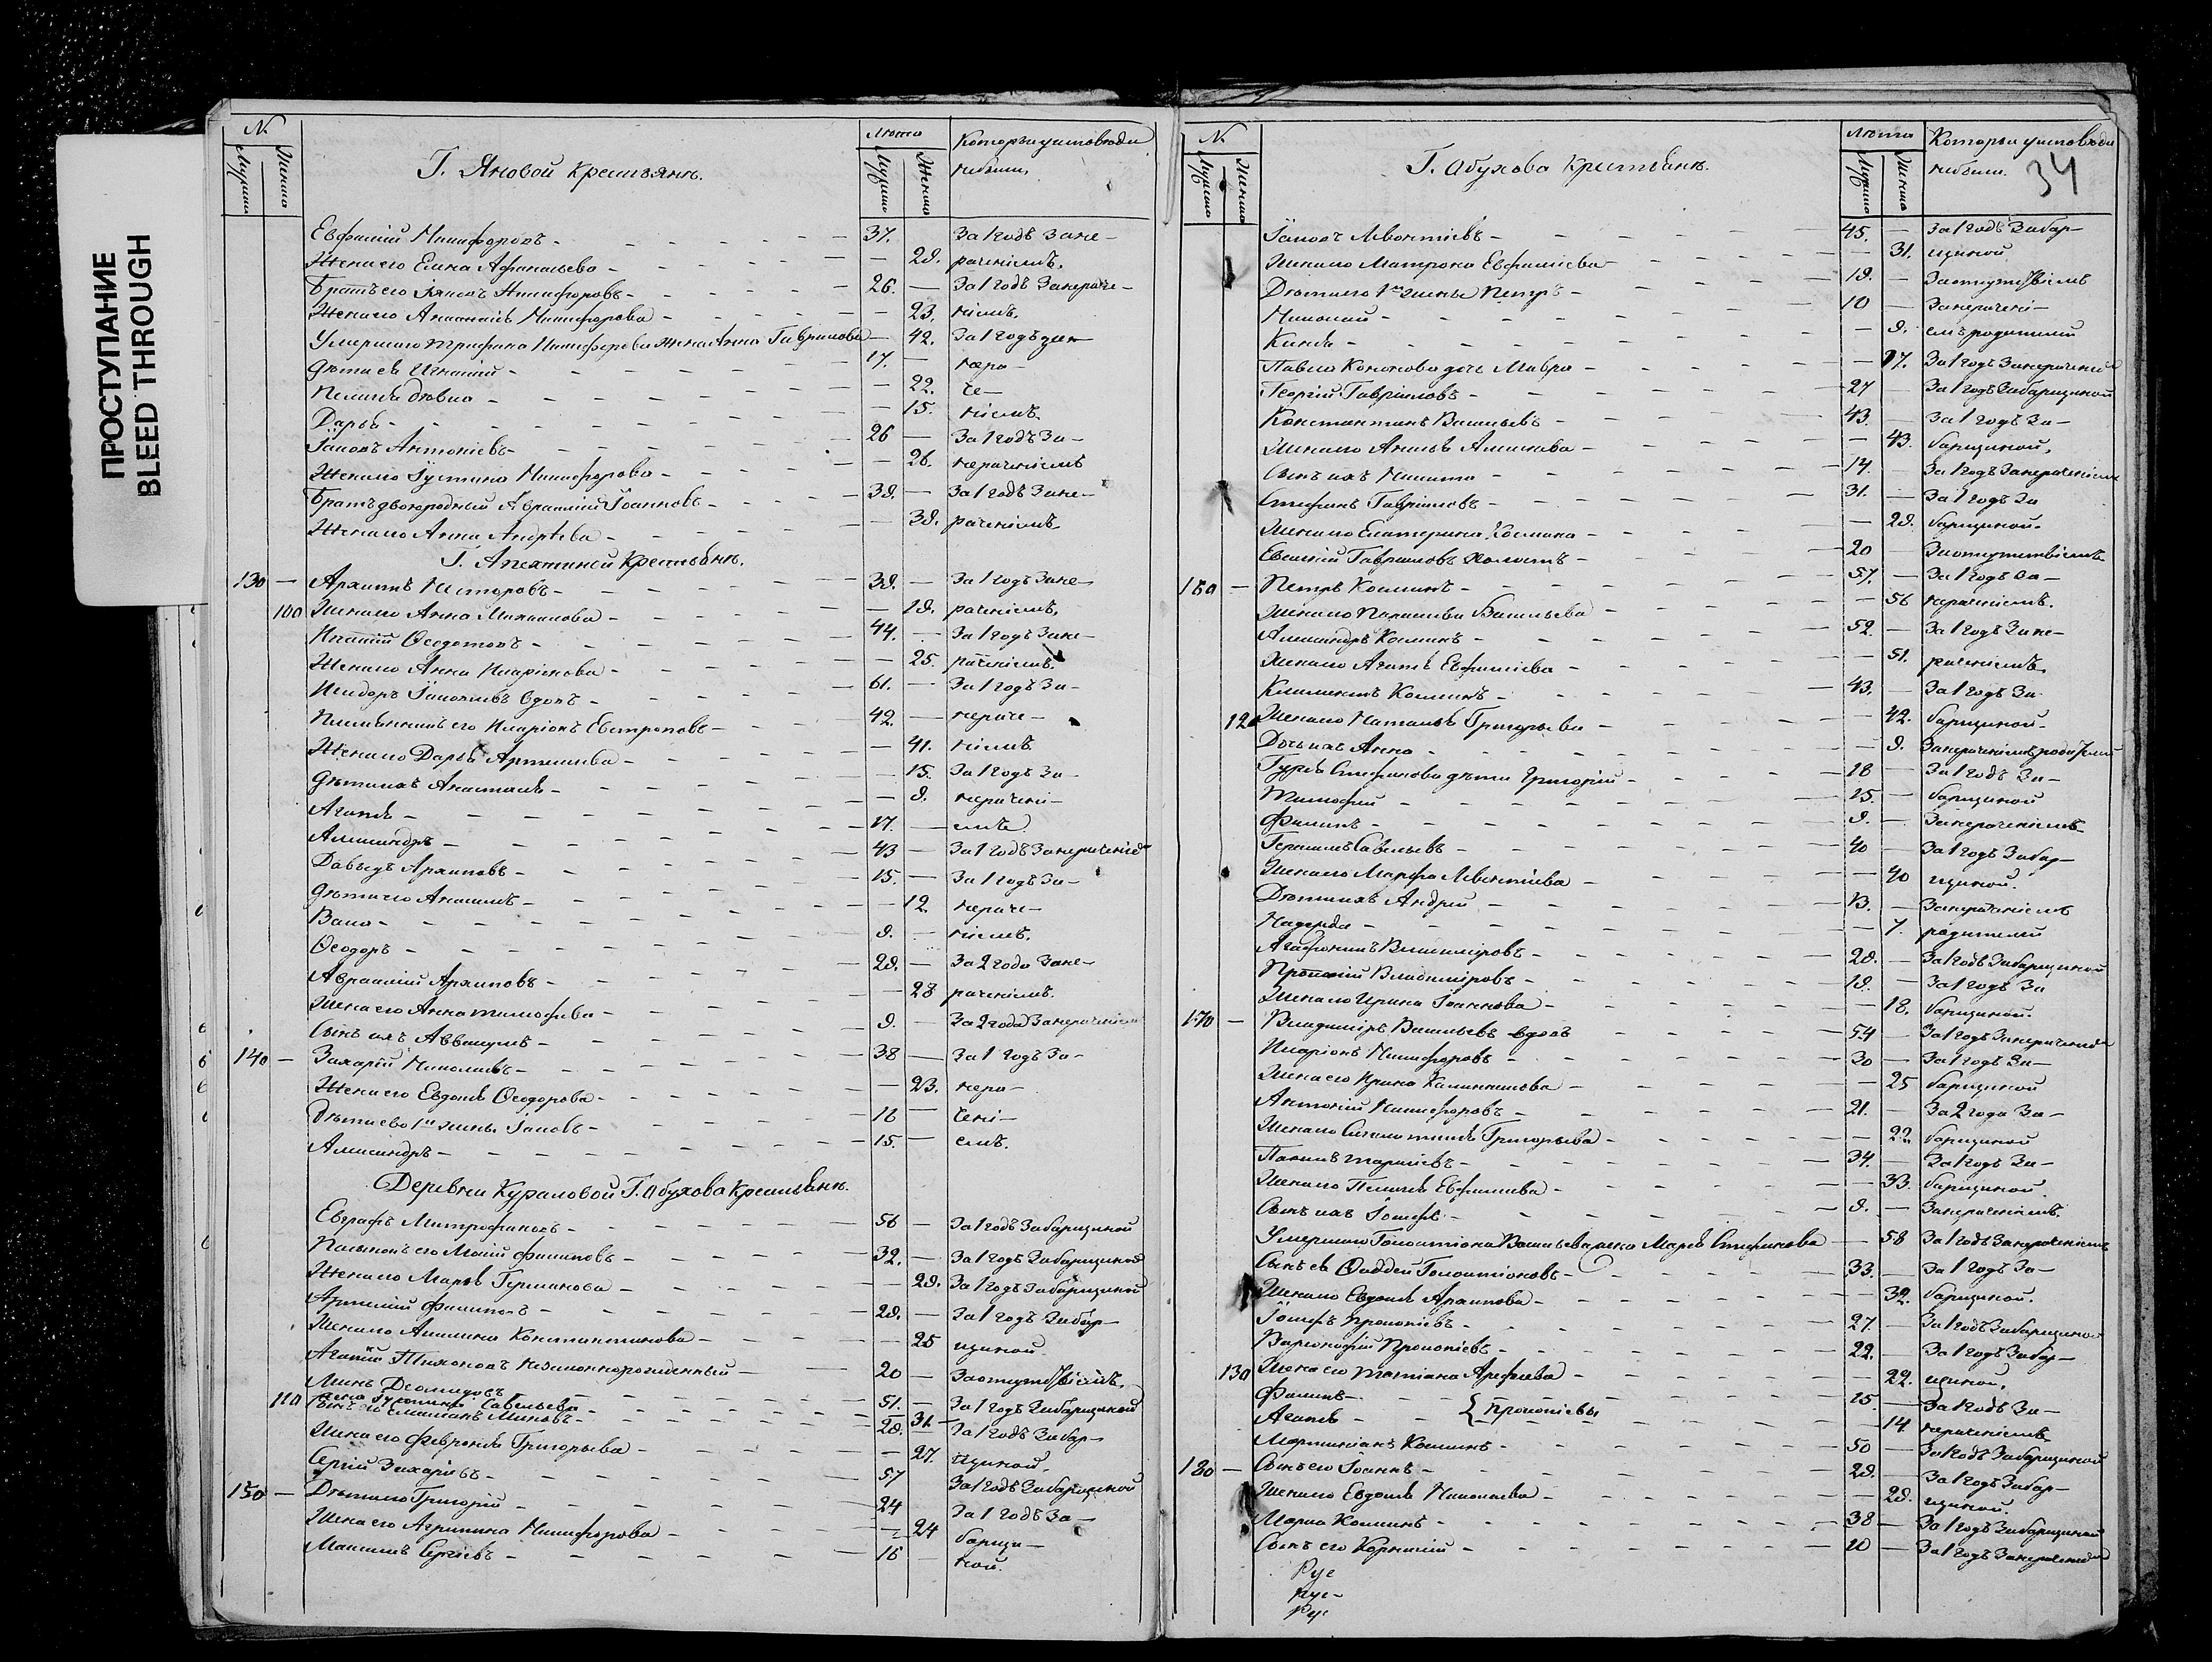 ПРОСТУПАНИЕ
BLEED THROUGH
№
Мужска
Женска
Г. Яновой крестьянъ.
лѣта
Мужска
Женска
Евфимій Никифоровъ 37. За 1 годъ зане-
Жена его Елена Афанасьева 28. раченіемъ.
Братъ его Никифоровъ 26. За 1 годъ занераче-
Жена его Никифорова 23. ніемъ.
Умершаго Трифона Никифорова жена Анна Гаврилова 42. За 1 годъ зан
дѣти ея Игнатій 17. нера-
Пелагея 22. че-
Дарья 15. ніемъ.
Іаковъ Антоніевъ 26 За 1 годъ за-
Жена его Іустина Никифорова 26. нераченіемъ
Братъ двоюродный Авраамій Іоанновъ 38. За 1 годъ зане-
Жена его Анна Андреева 38. раченіемъ.
Г. крестьянъ.
130 Архипъ Несторовъ 38. За 1 годъ зане-
100 Жена его Анна Михаилова 18. раченіемъ.
Игнатій Ѳеодотовъ 44. За 1 годъ зане-
Жена его Анна Иларіонова 25. раченіемъ.
Исидоръ вдовъ 61. За 1 годъ за-
Племянникъ его Иларіонъ Евтроповъ 42. нераче-
Жена его Дарья Артемьева 41. ніемъ
дѣти ихъ Анастасія 15. За 1 годъ за-
Агапія 8. нерачені-
Александръ 17. емъ
Давыдъ Архиповъ 43 За 1 годъ занераченіе
дѣти его 15. За 1 годъ за-
Васса 12. нераче-
Ѳеодоръ 8. ніемъ.
Авраамій Архиповъ 28. За 2 года зане-
Жена его Анна Тимофеева 28 раченіемъ.
Сынъ ихъ Аввакумъ 8. За 2 года занераченіем
140 Захарій Николаевъ 38 За 1 годъ за-
Жена его Евдокія Ѳеодорова 23. нера-
Дѣти его 1й жены Іаковъ 18 чені-
Александръ 15. емъ.
Деревни Кураловой Г. Обухова крестьянъ.
Евграфъ Митрофановъ 56 За 1 годъ забарщиной
Пасынокъ его Филиповъ 32. За 1 годъ забарщиной
Жена его Марья Германова 28. За 1 годъ забарщиной
Артемій Филиповъ 28. За 1 годъ забар-
Жена его Акилина Константинова 25 щиной
Агапій Тихоновъ незаконнорожденный 20 Заотсутствіемъ.
Минъ Деомидовъ 51. За 1 годъ забарщиной
110 жена Савельева 31
Сынъ ихъ Миновъ 28. За 1 годъ забар-
Жена его Февронія Григорьева 27. щиной.
Сергій Захаріевъ 57 За 1 годъ забарщиной
150 Дѣти его Григорій 24 За 1 годъ за-
Жена его Агрипина Никифорова 24 барщи-
Максимъ Сергіевъ 16 ной.
№
Мужска
Женска
Г. Обухова крестьянъ.
лѣта
Мужска
Женска
34
Іаковъ Леонтіевъ 45. За 1 годъ забар-
Жена его Матрона Евфиміева 31. щиной
Дѣти его 1й жены Петръ 18. Заотсутствіемъ
Николай 10 Занерачені-
8. емъ родителей
Павла Кононова дочь Мавра 17. За 1 годъ занераченіе
Георгій Гавриловъ 27 За 1 годъ забарщиной
Константинъ Васильевъ 43. За 1 годъ за-
Жена его 43. барщиной.
Сынъ ихъ Никита 14. За 1 годъ занераченіем
Стефанъ Гавриловъ 31. За 1 годъ за
Жена его Екатерина 28. барщиной.
Евсевій Гавриловъ холостъ 20 Заотсутствіемъ
160 Петръ Косминъ 57. За 1 годъ за-
Жена его Параскева Васильева 56 нераченіемъ.
Александръ Косминъ 52. За 1 годъ зане-
Жена его Агапія Евфиміева 51. раченіемъ
Климентъ Косминъ 43. За 1 годъ за
120 Жена его Наталья Григорьева 42. барщиной.
Дочь ихъ Анна 8. Занераченіемъ родителей
Стефанова дѣти Григорій 18 За 1 годъ за-
Тимофей 15. барщиной
Филипъ 8. Занераченіемъ
Германъ Савельевъ 40 За 1 годъ забар-
Жена его Марфа Леонтіева 40 щиной.
Дѣти ихъ Андрей 13. Занераченіемъ
Надежда 7. родителей
Агафоникъ Владиміровъ 28. За 1 годъ забарщиной
Владиміровъ 18. За 1 годъ за
Жена его Ирина Іоаннова 18. барщиной.
170 Владиміръ Васильевъ вдовъ 54 За 1 годъ занераченіе
Иларіонъ Никифоровъ 30 За 1 годъ за-
Жена его Ирина Калинникова 25 барщиной
Антоній Никифоровъ 21. За 2 года за-
Жена его Григорьева 22 барщиной
34. За 1 годъ за-
Жена его Пелагея Евфимиева 33. барщиной.
Сынъ ихъ Іосифъ 8. Занераченіемъ.
Умершаго Галактіона Васильева жена Марья Стефанова 58 За 1 годъ занераченіемъ
Сынъ ея Ѳаддей Галактіоновъ 33. За 1 годъ за-
Жена его Евдокія Архипова 32. барщиной.
Іосифъ Прокопіевъ 27. За 1 годъ забарщиной
Варлофій Прокопіевъ 22. За 1 годъ забар-
130 Жена его Татіана Арефиева 22. щиной.
Филипъ 15 За 1 годъ за-
Агапія } Прокопіевы 14 нераченіемъ
Мартиніанъ Косминъ 50 За 1 годъ забарщиной
180 Сынъ его Іоаннъ 28. За 1 годъ забар-
Жена его Евдокія Николаева 28. щиной
Марко Косминъ 38 За 1 годъ забарщиной
Сынъ его Корнилій 10 За 1 годъ занераченіе
Рус
Рус-
Рус